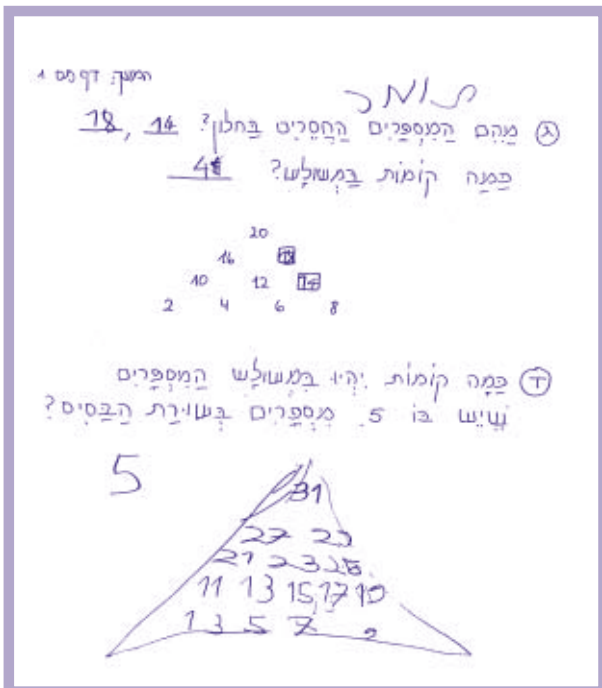 המשך: דף מס 1
תומר
ג מהם המספרים החסרים בחלון? 14, 18
כמה קומות במשולש? 4
20
16 18
10 12 14
2 4 6 8
ד כמה קומות יהיו במשולש המספרים
שיש בו 5 מספרים בשורת הבסיס?
5
31
27
21 23 25
11 13 15 17 19
1 3 5 7 9